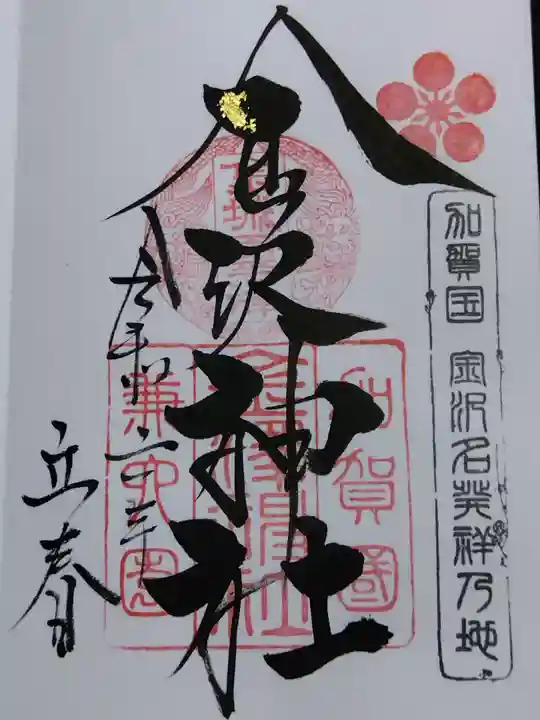 加賀国 金沢名発祥乃地
金沢神社
加賀國
金澤神社
兼六園
立春